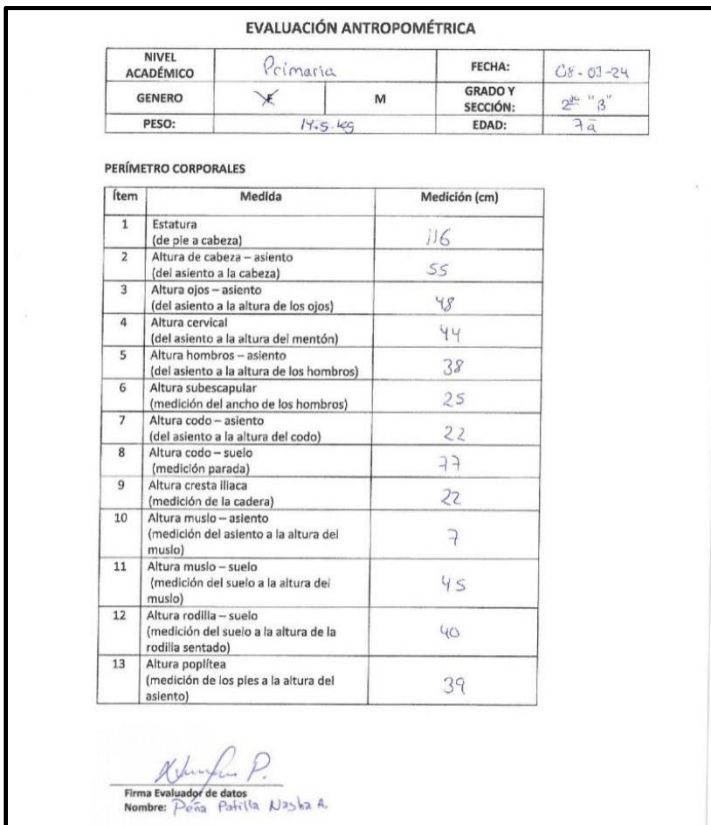 EVALUACIÓN ANTROPOMÉTRICA
NIVEL ACADÉMICO Primaria FECHA: 08-03-24
GENERO F M GRADO Y SECCIÓN: 2do "B"
PESO: 14.5 kg EDAD: 7a
PERÍMETRO CORPORALES
Ítem Medida Medición (cm)
1 Estatura
(de pie a cabeza) 116
2 Altura de cabeza – asiento
(del asiento a la cabeza) 55
3 Altura ojos – asiento
(del asiento a la altura de los ojos) 48
4 Altura cervical
(del asiento a la altura del mentón) 44
5 Altura hombros – asiento
(del asiento a la altura de los hombros) 38
6 Altura subescapular
(medición del ancho de los hombros) 25
7 Altura codo – asiento
(del asiento a la altura del codo) 22
8 Altura codo – suelo
(medición parada) 77
9 Altura cresta iliaca
(medición de la cadera) 22
10 Altura muslo – asiento
(medición del asiento a la altura del
muslo) 7
11 Altura muslo – suelo
(medición del suelo a la altura del
muslo) 45
12 Altura rodilla – suelo
(medición del suelo a la altura de la
rodilla sentado) 40
13 Altura poplítea
(medición de los pies a la altura del
asiento) 39
Firma Evaluador de datos
Nombre: Peña Patilla Nasha A.